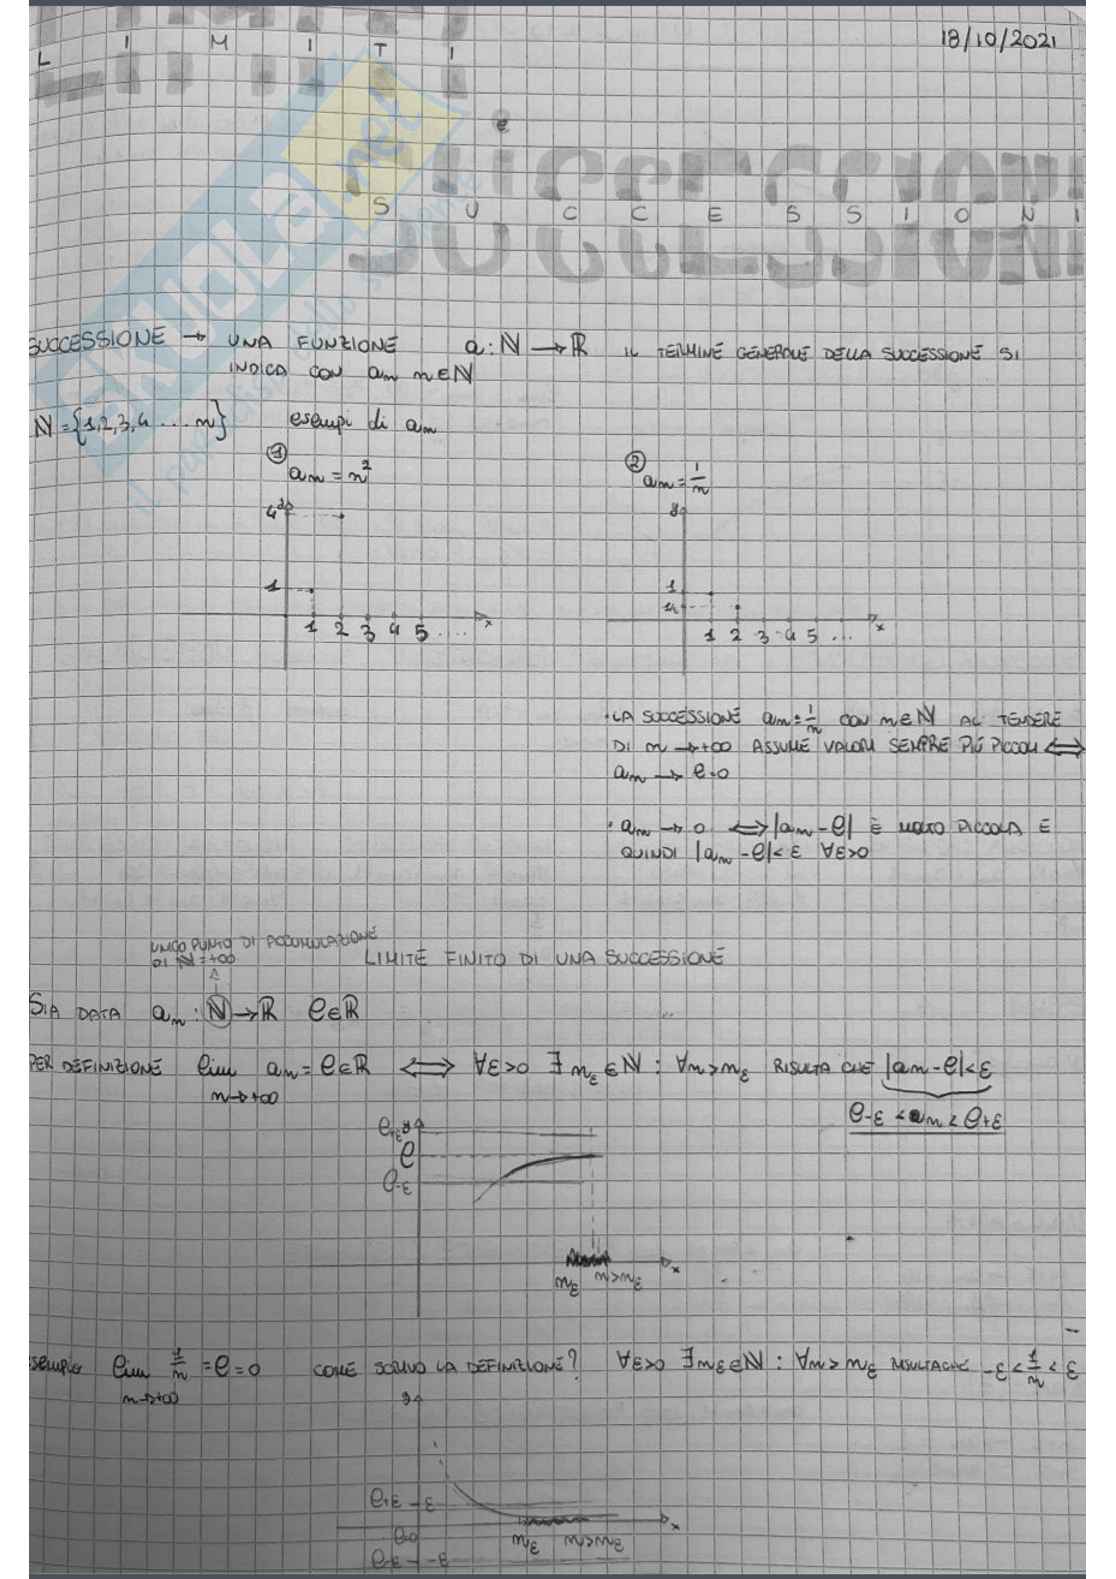 18/10/2021
LIMITI
e
SUCCESSIONI
SUCCESSIONE → UNA FUNZIONE a: ℕ → ℝ IL TERMINE GENERALE DELLA SUCCESSIONE SI
INDICA CON an n∈ℕ
ℕ={1,2,3,4 ... n} esempi di an
① an = n²
② an = 1/n
4 y
1
1 2 3 4 5 .... x
y
1
1 2 3 4 5 ... x
• LA SUCCESSIONE an = 1/n CON n∈ℕ AL TENDERE
DI n → +∞ ASSUME VALORI SEMPRE PIÙ PICCOLI ⟺
an → ℓ=0
• an → 0 ⟺ |an - ℓ| È MOLTO PICCOLA E
QUINDI |an - ℓ| < ε ∀ε>0
UNICO PUNTO DI ACCUMULAZIONE
DI ℕ = +∞
LIMITE FINITO DI UNA SUCCESSIONE
SIA DATA an : ℕ → ℝ ℓ∈ℝ
PER DEFINIZIONE lim an = ℓ∈ℝ ⟺ ∀ε>0 ∃ nε ∈ℕ : ∀n>nε RISULTA CHE |an - ℓ|<ε
n→+∞
ℓ-ε < an < ℓ+ε
ℓ+ε y
ℓ
ℓ-ε
nε n>nε x
esempio lim 1/n = ℓ = 0 COME SCRIVO LA DEFINIZIONE? ∀ε>0 ∃nε∈ℕ : ∀n > nε RISULTA CHE -ε < 1/n < ε
n→+∞
y
ℓ+ε ε
ℓ=0 nε n>nε x
ℓ-ε -ε
il paradiso dello studente
SKUOLA.net